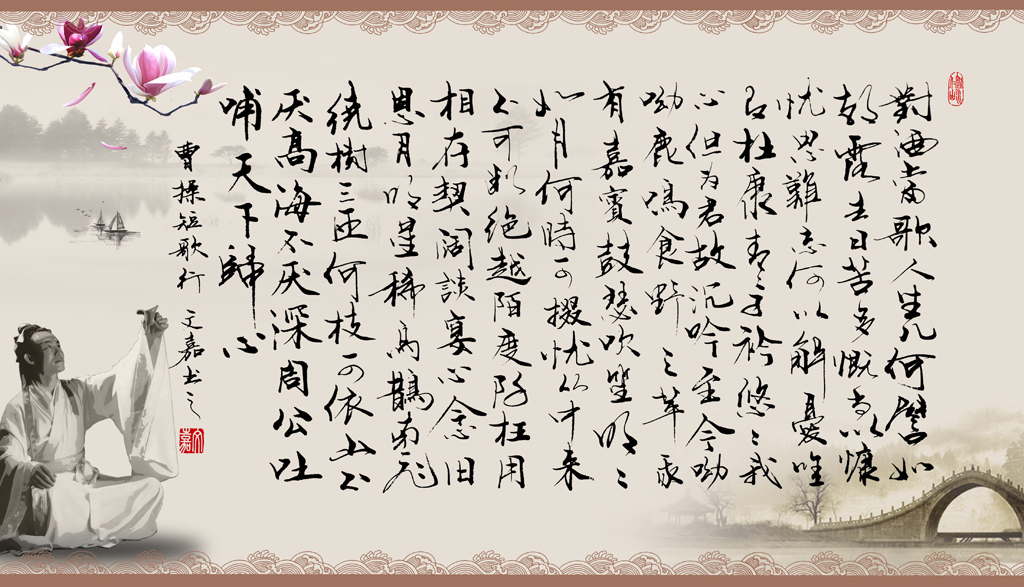 對酒當歌人生几何譬如
朝露去日苦多慨當以慷
忧思難忘何以解憂唯
有杜康青々子衿悠々我
心但为君故沉吟至今呦
呦鹿鳴食野之苹我
有嘉賓鼓瑟吹笙明々
如月何時可掇忧从中来
不可断绝越陌度阡枉用
相存契阔談宴心念旧
恩月明星稀烏鵲南飛
绕樹三匝何枝可依山不
厌高海不厌深周公吐
哺天下歸心
曹操短歌行 文嘉书之
文嘉